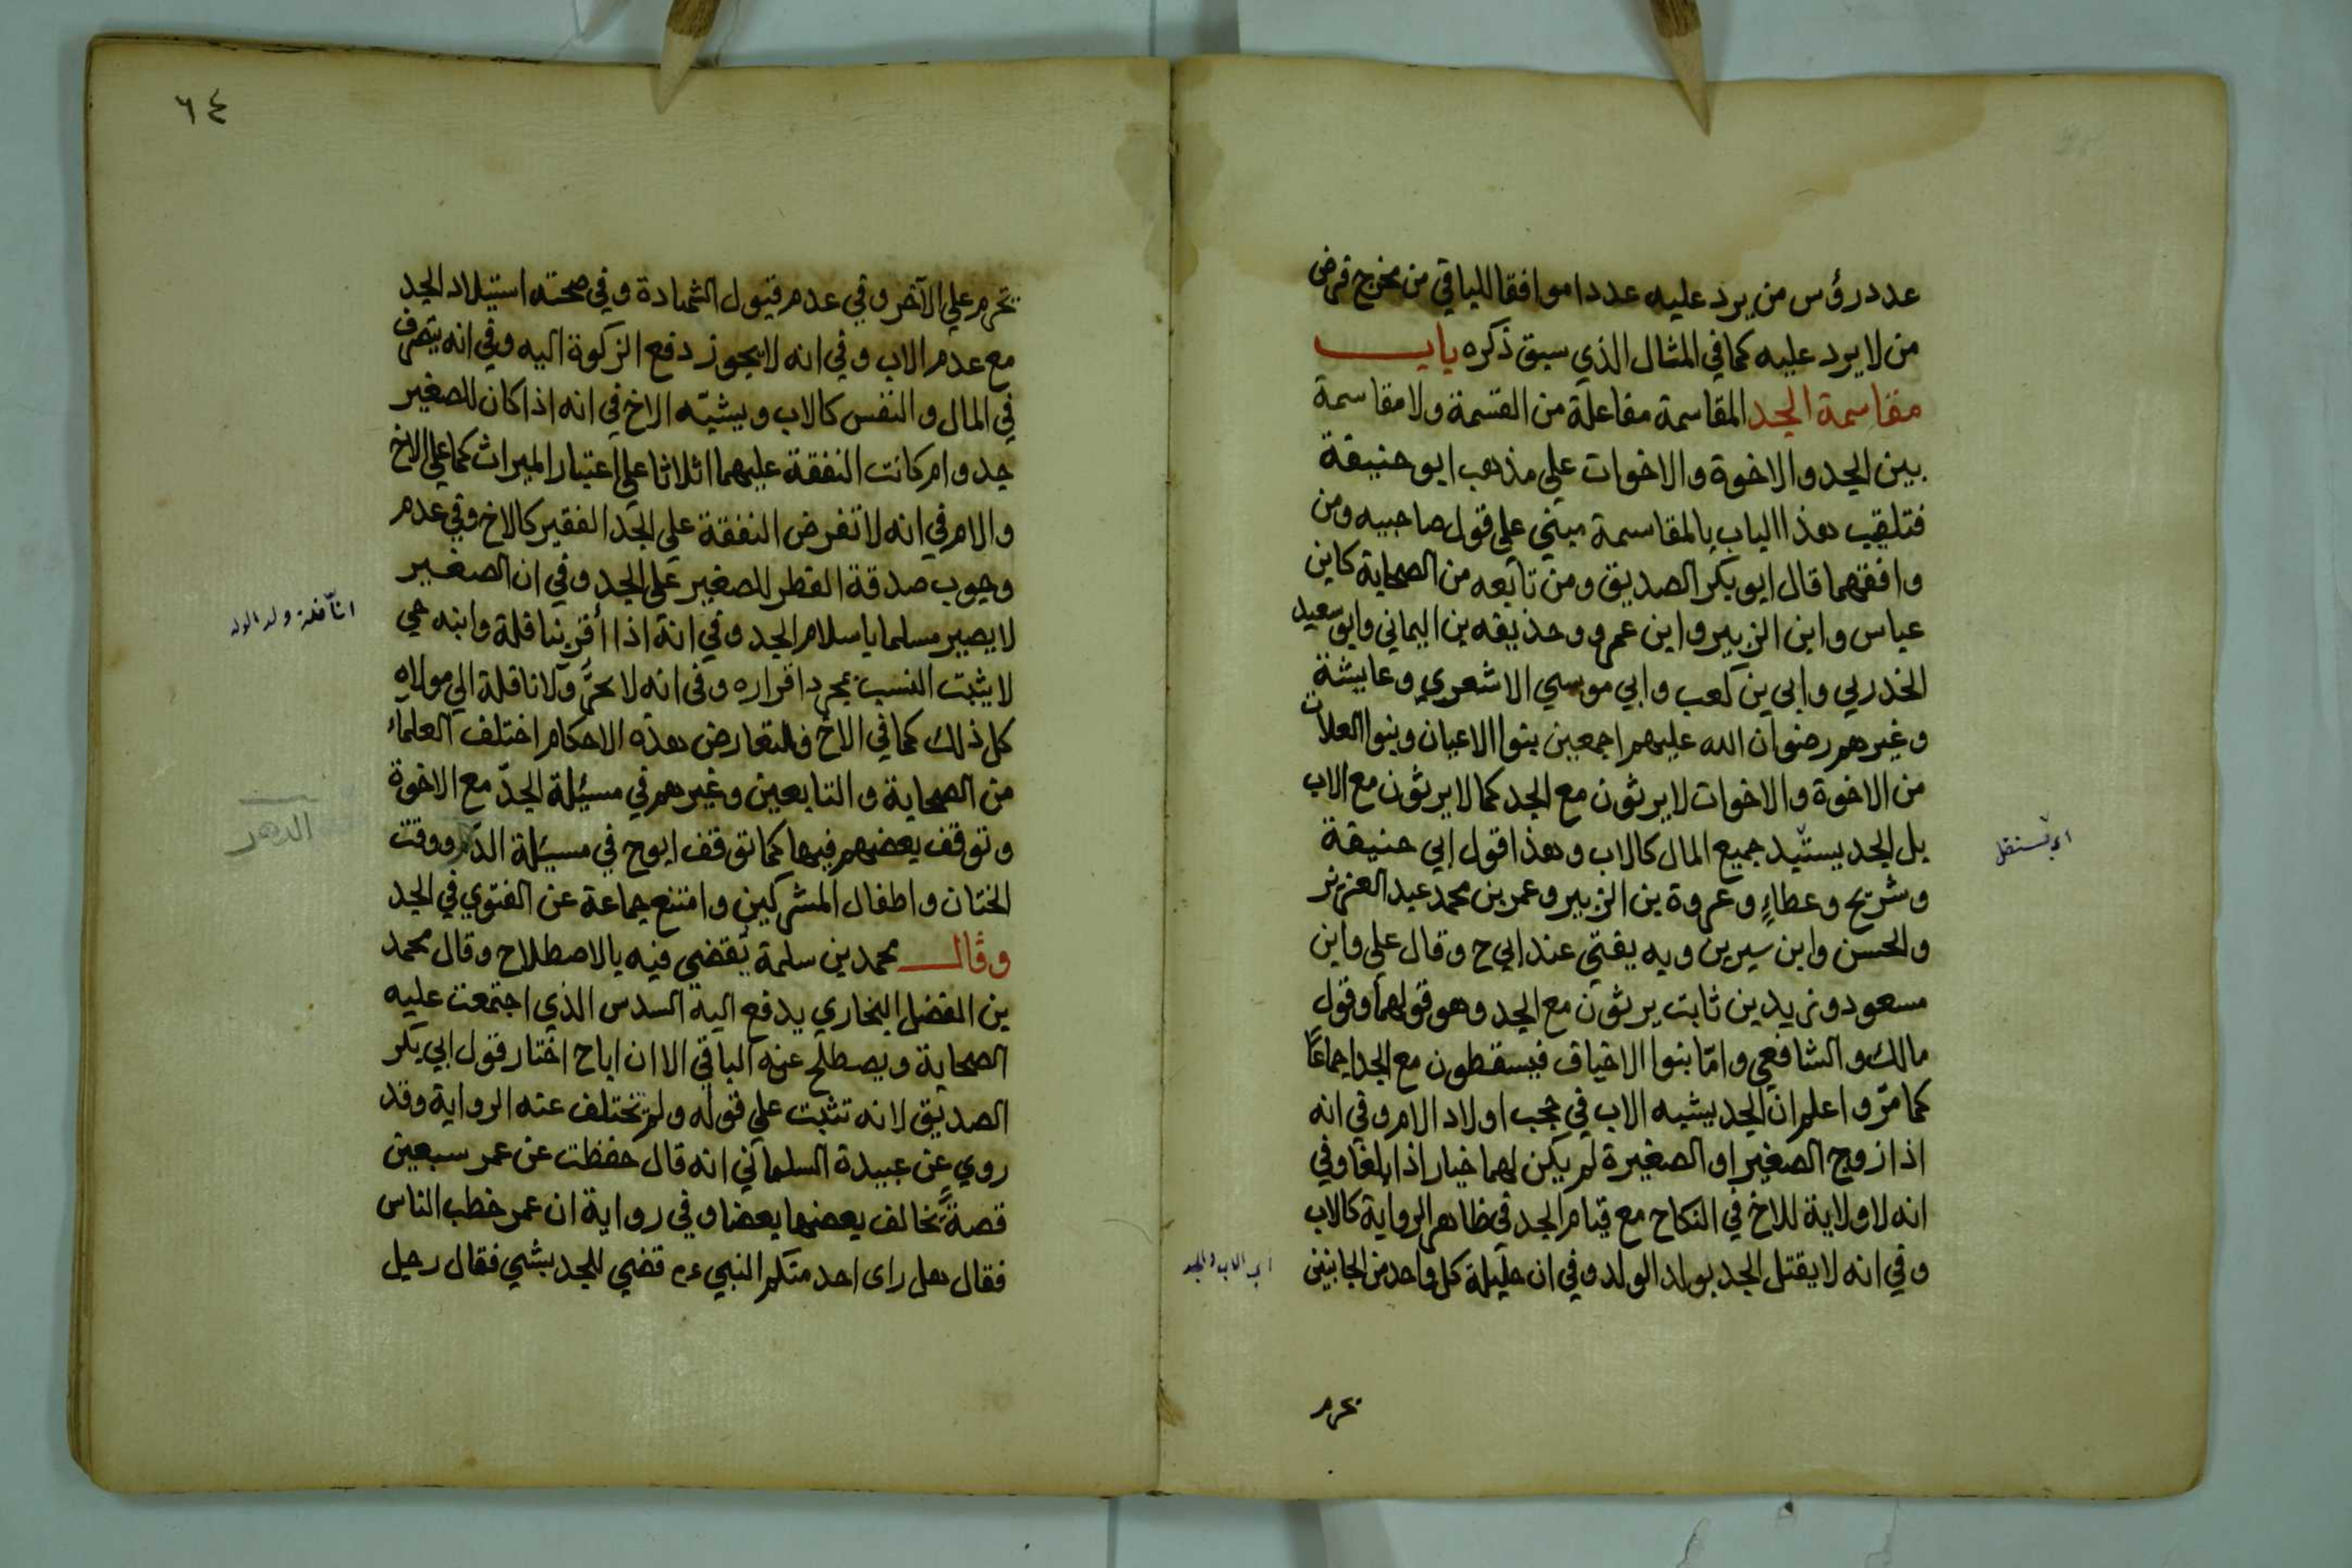 عدد رؤس من يرد عليه عددا موافقا للباقي من مخرج فرض
من لا يرد عليه كما في المثال الذي سبق ذكره باب
مقاسمة الجد المقاسمة مفاعلة من القسمة ولا مقاسمة
بين الجد والاخوة والاخوات علي مذهب ابو حنيفة
فتلقيب هذا الباب بالمقاسمة مبني علي قول صاحبيه ومن
وافقهما قال ابو بكر الصديق ومن تابعه من الصحابة كابن
عباس وابن الزبير وابن عمر وحذيفه بن اليماني وابو سعيد
الخدري وابي بن كعب وابي موسي الاشعري وعايشة
وغيرهم رضوان الله عليهم اجمعين بنوا الاعيان وبنوا العلات
من الاخوة والاخوات لا يرثون مع الجد كما لا يرثون مع الاب
بل الجد يستبد جميع المال كالاب وهذا قول ابي حنيفة
اي يستقل
وشريح وعطاء وعروة بن الزبير وعمر بن محمد عبد العزيز
والحسن وابن سيرين وبه يفتي عند ابي ح وقال علي وابن
مسعود وزيد بن ثابت يرثون مع الجد وهو قولهما وقول
مالك والشافعي وامّا بنوا الاخياف فيسقطون مع الجد اجماعًا
كما مرّ واعلم ان الجد يشبه الاب في حجب اولاد الام وفي انه
اذا زوج الصغير او الصغيرة لم يكن لهما خيار اذا بلغا وفي
انه لا ولاية للاخ في النكاح مع قيام الجد في ظاهر الرواية كالاب
وفي انه لا يقتل الجد بولد الولد وفي ان حليلة كل واحد من الجانبين
اي الاب والجد
تحرم
٦٤
تحرم علي الآخر وفي عدم قبول الشهادة وفي صحته استيلاد الجد
مع عدم الاب وفي انه لا يجوز دفع الزكوة اليه وفي انه يتصرف
في المال والنفس كالاب ويشبّه الاخ في انه اذا كان للصغير
جد وام كانت النفقة عليهما اثلاثا علي اعتبار الميراث كما علي الاخ
والام في انه لا تفرض النفقة علي الجد الفقير كالاخ وفي عدم
وجوب صدقة الفطر للصغير علي الجد وفي ان الصغير
لا يصير مسلما باسلام الجد وفي انه اذا أقر بنافلة وابنه حي
النّافلة ولد الولد
لا يثبت النسب بمجرد اقراره وفي انه لا يجرّ ولا نافلة الي مولاه
كل ذلك كما في الاخ فلتعارض هذه الاحكام اختلف العلماء
من الصحابة والتابعين وغيرهم في مسئلة الجدّ مع الاخوة
وتوقف بعضهم فيها كما توقف ابوح في مسئلة الدهر ووقت
الدهر
الختان واطفال المشركين وامتنع جماعة عن الفتوي في الجد
وقال محمد بن سلمة يقضي فيه بالاصطلاح وقال محمد
بن الفضل البخاري يدفع اليه السدس الذي اجتمعت عليه
الصحابة ويصطلح عنه الباقي الا ان اباح اختار قول ابي بكر
الصديق لانه تثبت علي قوله ولم تختلف عنه الرواية وقد
روي عن عبيدة السلماني انه قال حفظت عن عمر سبعين
قصةً يخالف بعضها بعضا وفي رواية ان عمر خطب الناس
فقال هل راى احد منكم النبي عم قضي للجد بشي فقال رجل